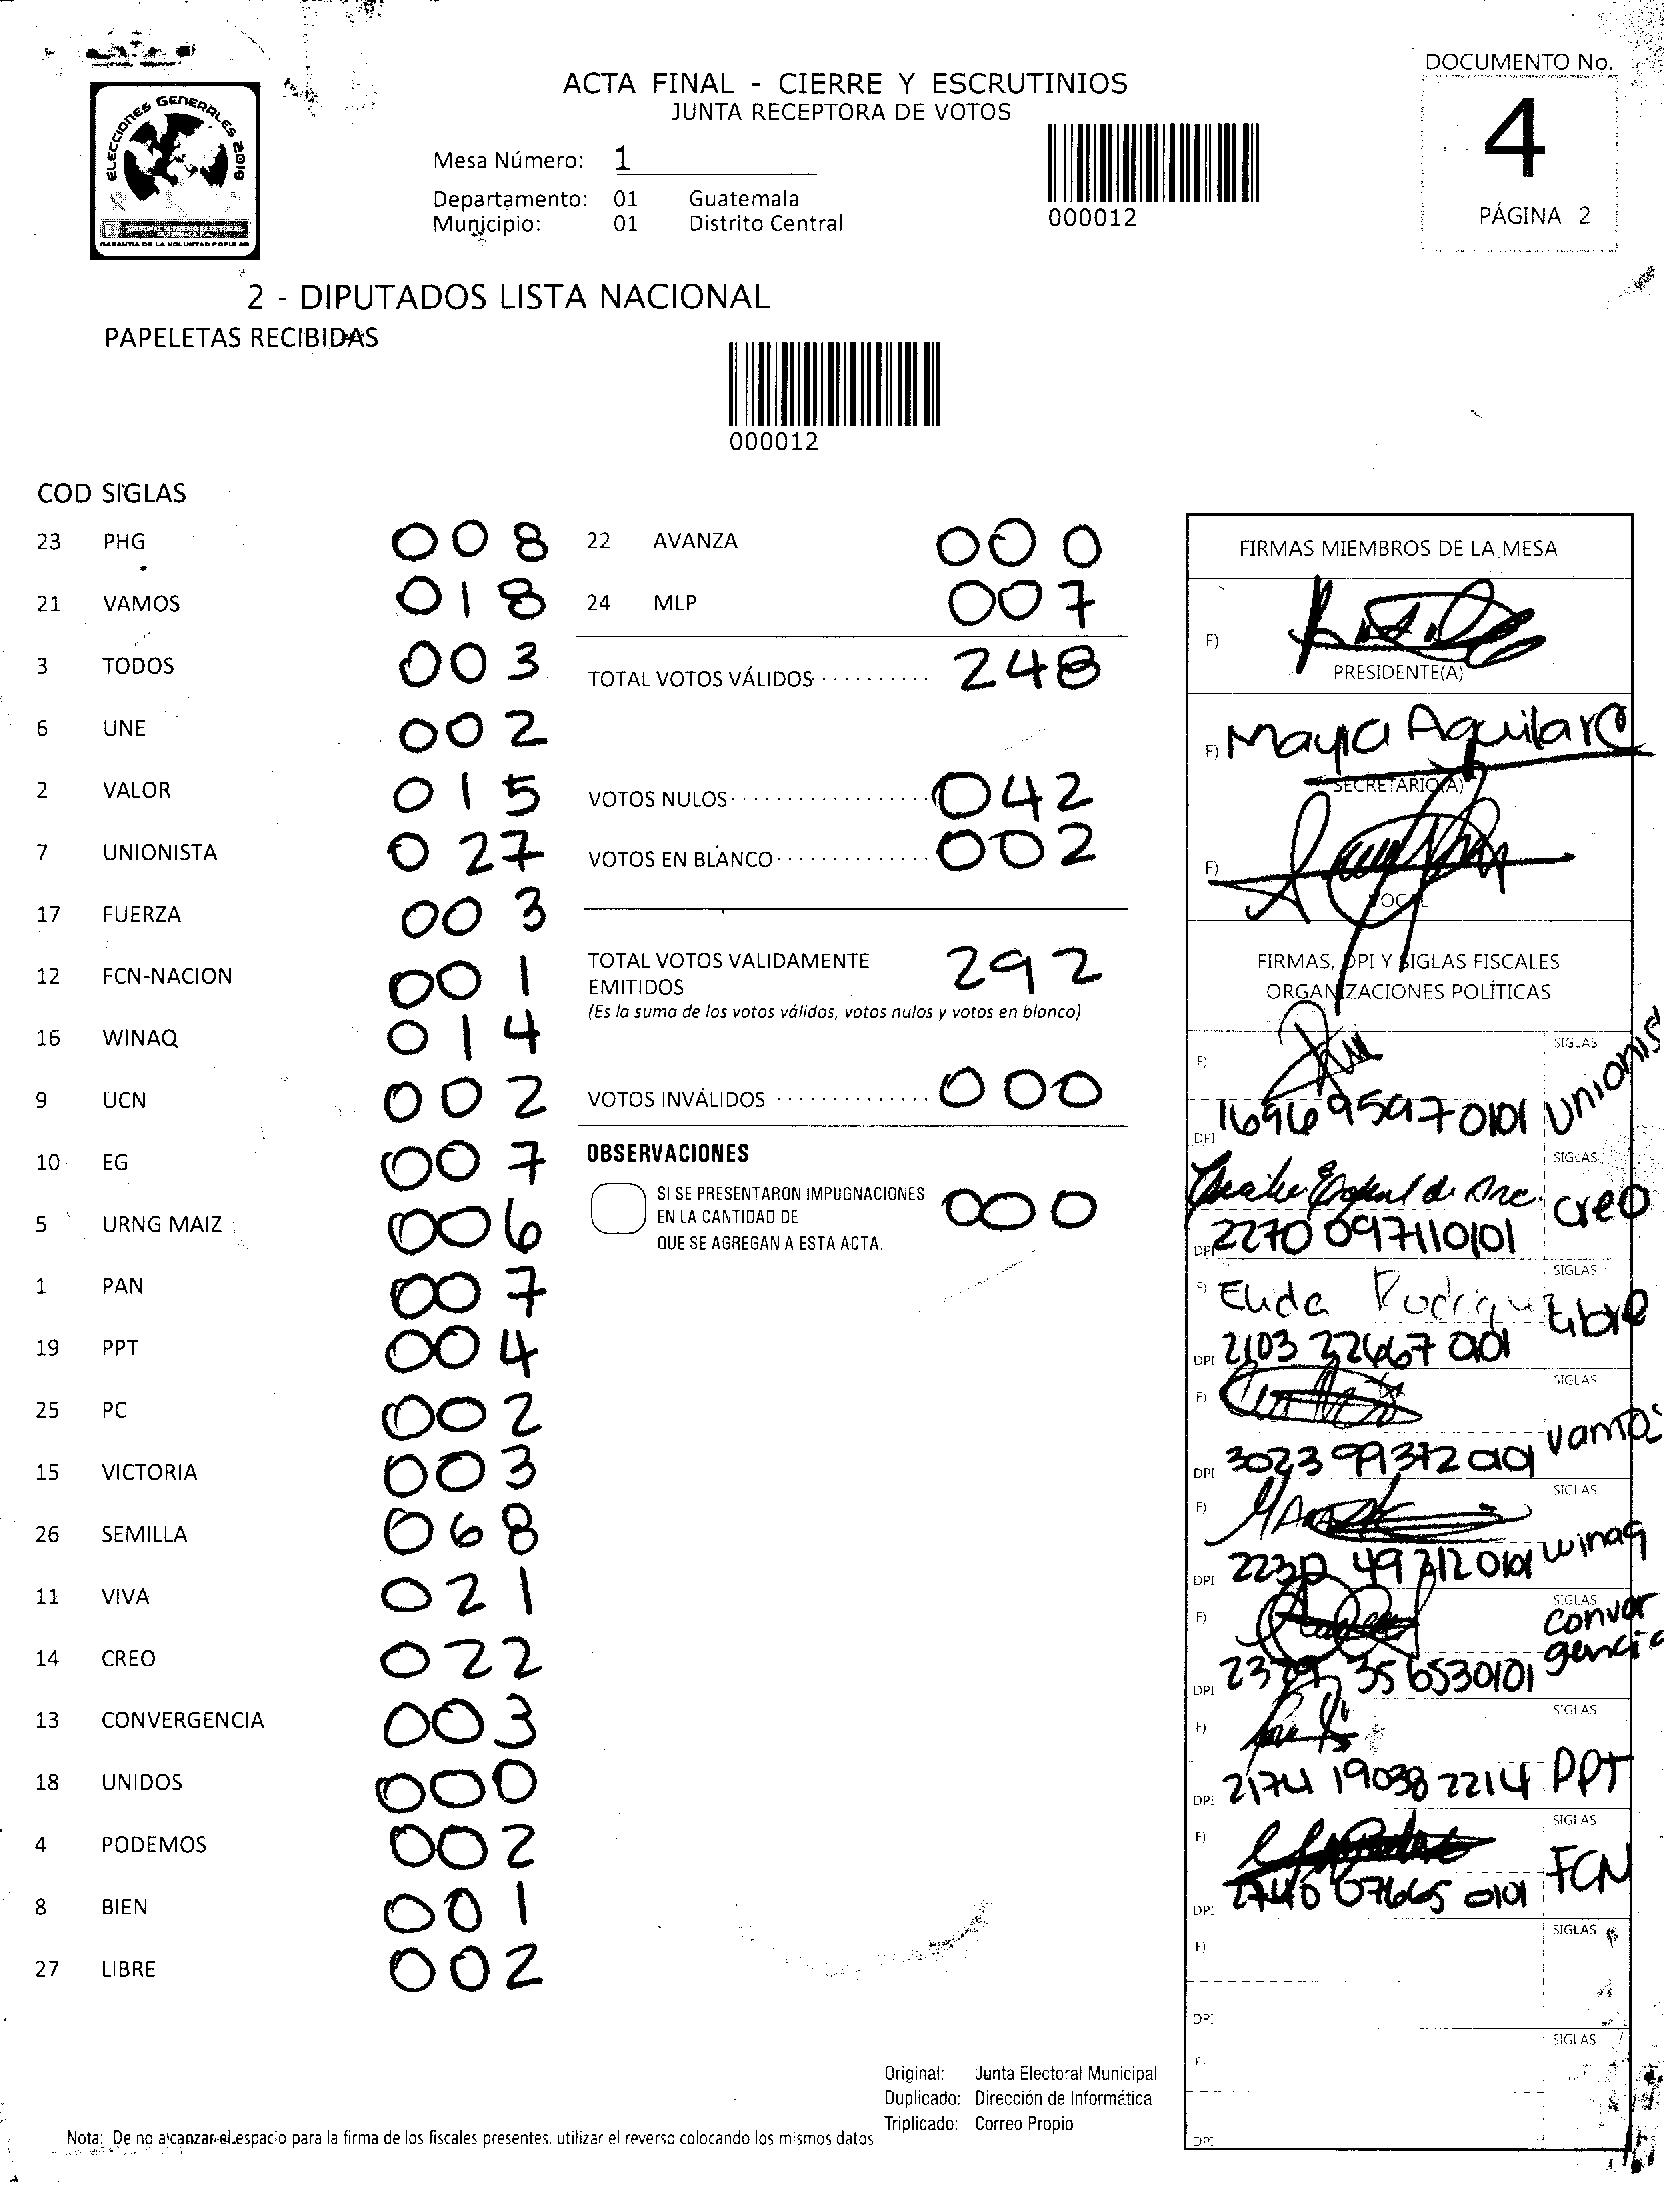 DOCUMENTO No.
4
PÁGINA 2
ELECCIONES GENERALES 2019
GARANTIA DE LA VOLUNTAD POPULAR
ACTA FINAL - CIERRE Y ESCRUTINIOS
JUNTA RECEPTORA DE VOTOS
Mesa Número: 1
Departamento: 01 Guatemala
Municipio: 01 Distrito Central
000012
2 - DIPUTADOS LISTA NACIONAL
PAPELETAS RECIBIDAS
000012
COD SIGLAS
23 PHG 008
21 VAMOS 018
3 TODOS 003
6 UNE 002
2 VALOR 015
7 UNIONISTA 027
17 FUERZA 003
12 FCN-NACION 001
16 WINAQ 014
9 UCN 002
10 EG 007
5 URNG MAIZ 006
1 PAN 007
19 PPT 004
25 PC 002
15 VICTORIA 003
26 SEMILLA 068
11 VIVA 021
14 CREO 022
13 CONVERGENCIA 003
18 UNIDOS 000
4 PODEMOS 002
8 BIEN 001
27 LIBRE 002
22 AVANZA 000
24 MLP 007
TOTAL VOTOS VÁLIDOS .......... 248
VOTOS NULOS .................. 042
VOTOS EN BLANCO .............. 002
TOTAL VOTOS VALIDAMENTE
EMITIDOS 292
(Es la suma de los votos válidos, votos nulos y votos en blanco)
VOTOS INVÁLIDOS ............. 000
OBSERVACIONES
SI SE PRESENTARON IMPUGNACIONES
EN LA CANTIDAD DE 000
QUE SE AGREGAN A ESTA ACTA.
FIRMAS MIEMBROS DE LA MESA
F)
PRESIDENTE(A)
F) Mayra Aguilar
SECRETARIO(A)
F)
VOCAL
FIRMAS, DPI Y SIGLAS FISCALES
ORGANIZACIONES POLÍTICAS
F) SIGLAS
DPI 1696959970101 Unionis
SIGLAS
creo
DPI 2270097110101
F) Elida Rodrigu SIGLAS
Libre
DPI 2103 22667 0101
F) SIGLAS
DPI 3023 99372 0101 Vamos
F) SIGLAS
DPI 2230 49312 0101 winaq
F) SIGLAS
Conver
gencia
DPI 356530101
F) SIGLAS
DPI 2174 19038 2214 PPT
F) SIGLAS
FCN
DPI 07665 0101
F) SIGLAS
DPI
F SIGLAS
DPI
Original: Junta Electoral Municipal
Duplicado: Dirección de Informática
Triplicado: Correo Propio
Nota: De no alcanzar el espacio para la firma de los fiscales presentes, utilizar el reverso colocando los mismos datos